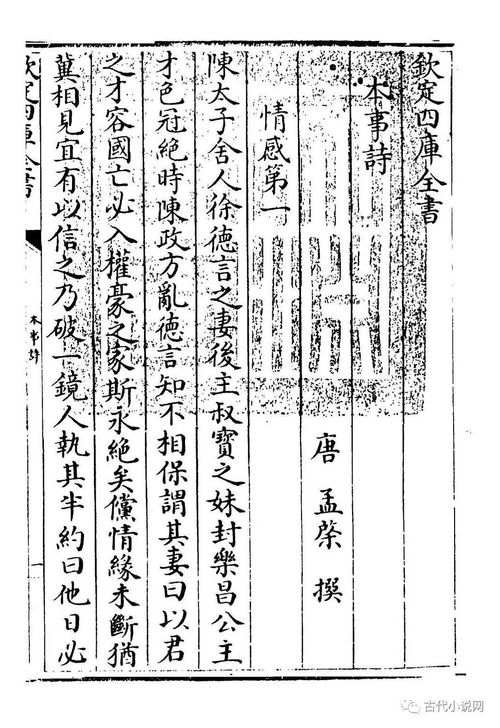 欽定四庫全書
本事詩
唐 孟棨 撰
情感第一
陳太子舍人徐德言之妻後主叔寶之妹封樂昌公主
才色冠絕時陳政方亂德言知不相保謂其妻曰以君
之才容國亡必入權豪之家斯永絕矣儻情緣未斷猶
冀相見宜有以信之乃破一鏡人執其半約曰他日必
欽定四庫全書
本事詩
一
古代小说网